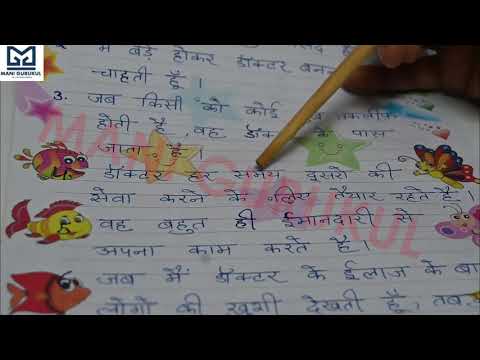 MANI GURUKUL
में बड़े होकर डॉक्टर बनना
चाहती हूँ ।
3. जब किसी को कोई तकलीफ
होती है, वह डॉक्टर के पास
जाता है ।
डॉक्टर हर समय दूसरो की
सेवा करने के लिए तैयार रहते है ।
वह बहुत ही ईमानदारी से
अपना काम करते है ।
जब मैं डॉक्टर के ईलाज के बा
लोगो की खुशी देखती हूँ, तब
MANI GURUKUL